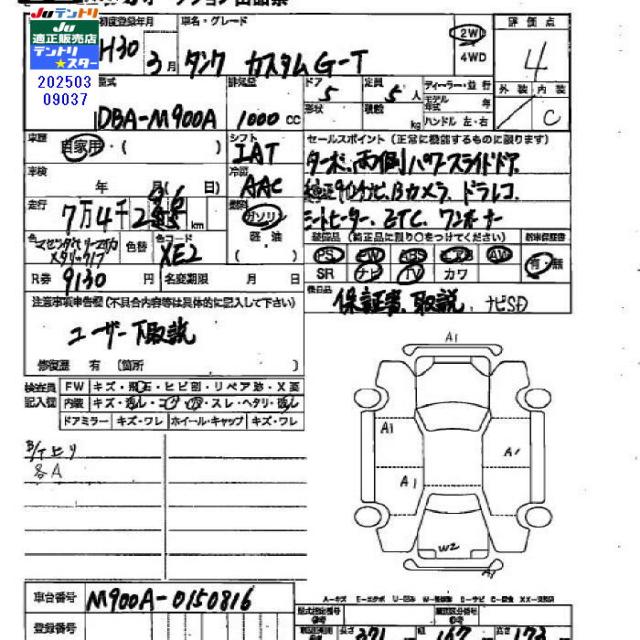 Juテントリ
Ju
適正販売店
テントリ
★スター
202503
09037
初度登録年月
車名・グレード
H30
3月
タンク カスタムG-T
2WD
4WD
評価点
4
外装 内装
C
型式
排気量
ドア
定員
ディーラー・並行
DBA-M900A
1000 cc
5
5人
形状
積数
kg
モデル
年式 年
ハンドル 左・右
車歴
自家用・( )
シフト
IAT
セールスポイント(正常に機能するものに限ります)
ターボ、両側パワースライドドア
車検
年 月( 日)
冷房
AAC
純正9インチナビ、Bカメラ、ドラレコ
走行
7万4千2
km
燃料
ガソリン
軽油
シートヒーター、ETC、ワンオーナー
色
色替
色コード
XE2
装備品(純正品に限り○をつけてください)
新車保証書
PS PW ABS エアB AW
SR ナビ TV カワ
有・無
R券
9130 円
名変期限 月 日
後日品
保証書、取説、ナビSD
注意事項申告欄(不具合内容等は具体的に記入して下さい)
ユーザー下取説
修復歴 有(箇所 )
検査員
記入欄
FW
キズ・飛石・ヒビ割・リペア跡・X要
内装
ドアミラー
キズ・ワレ
ホイール・キャップ
キズ・ワレ
各A
A1
A1
A1
A1
W2
A1
車台番号
M900A-0150816
登録番号
型式指定番号
類別区分番号
長さ
371
167
173